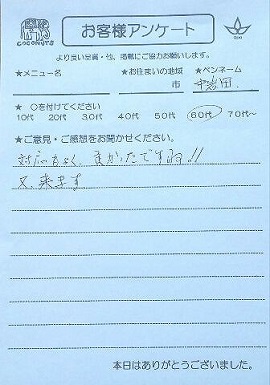 coconuts
お客様アンケート
より良い品質・他、掲載にご協力お願いします。
★メニュー名 ★お住まいの地域 ★ペンネーム
市
★ ○を付けてください
10代 20代 30代 40代 50代 60代 70代~
★ご意見・ご感想をお聞かせください。
よかったですね!!
又、来ます
本日はありがとうございました。